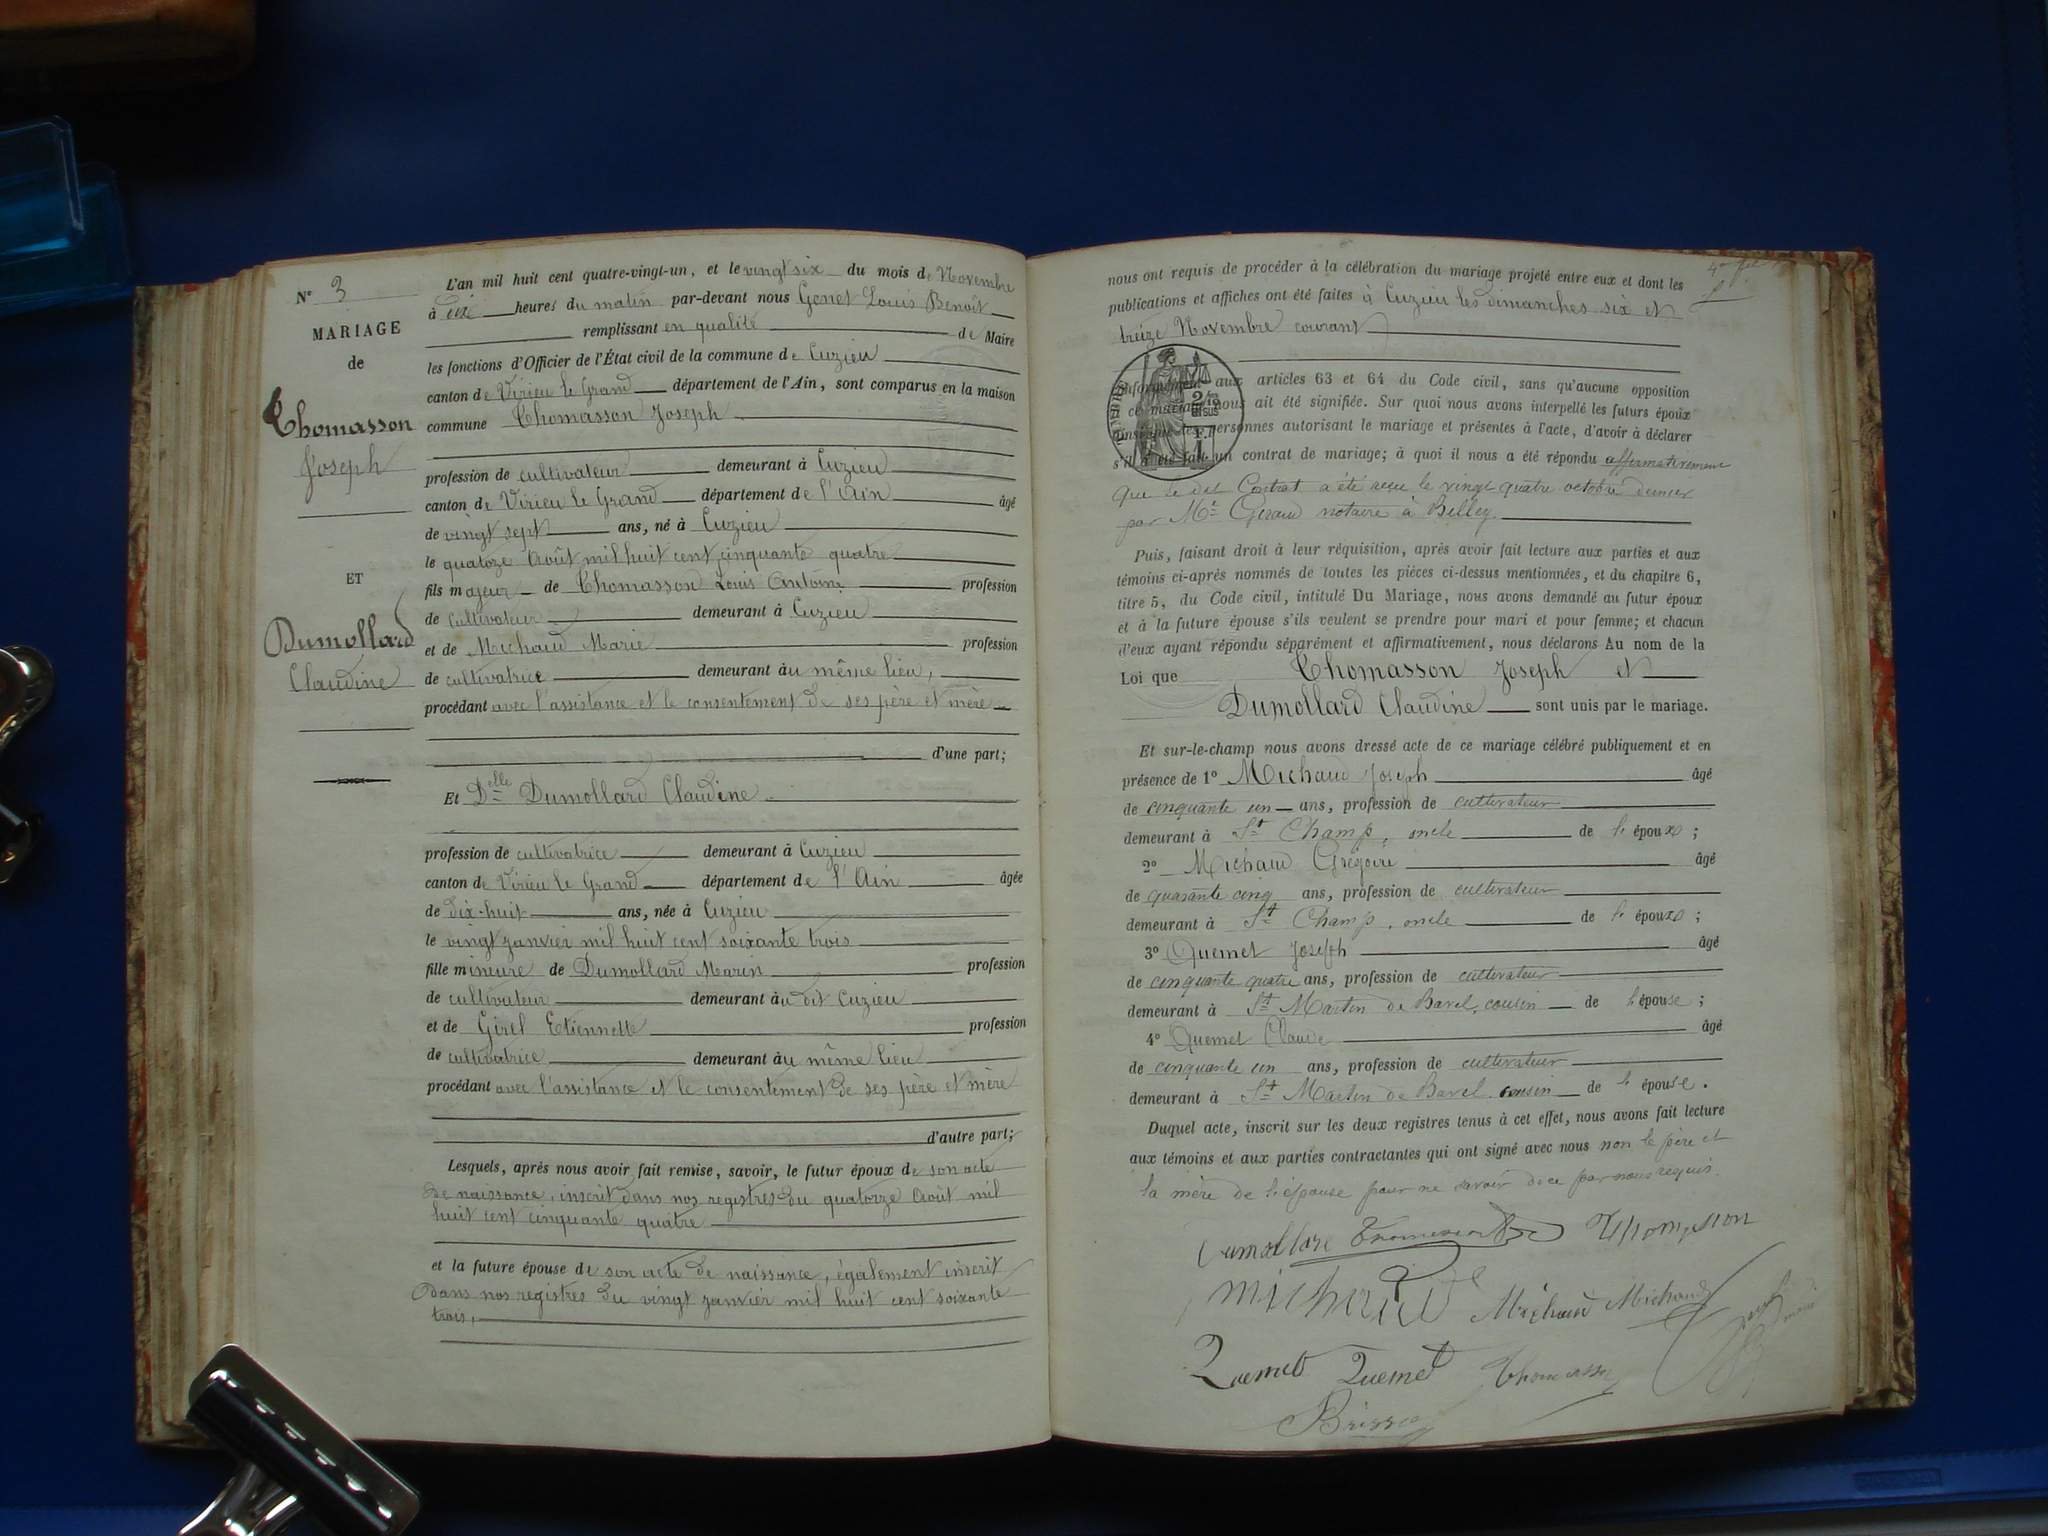 N° 3
MARIAGE
de
Thomasson
Joseph
ET
Dumollard
Claudine
L'an mil huit cent quatre-vingt-un, et le vingt six du mois de Novembre
à dix heures du matin par-devant nous Genet Louis Benoît
remplissant en qualité de Maire
les fonctions d'Officier de l'État civil de la commune de Cuzieu
canton de Virieu le Grand département de l'Ain, sont comparus en la maison
commune Thomasson Joseph
profession de cultivateur demeurant à Cuzieu
canton de Virieu le Grand département de l'Ain âgé
de vingt sept ans, né à Cuzieu
le quatoze Août mil huit cent cinquante quatre
fils majeur de Thomasson Louis Antoine profession
de cultivateur demeurant à Cuzieu
et de Michaud Marie profession
de cultivatrice demeurant au même lieu,
procédant avec l'assistance et le consentement de ses père et mère
d'une part;
Et Delle Dumollard Claudine
profession de cultivatrice demeurant à Cuzieu
canton de Virieu le Grand département de l'Ain âgée
de dix-huit ans, née à Cuzieu
le vingt janvier mil huit cent soixante trois
fille mineure de Dumollard Marin profession
de cultivateur demeurant au dit Cuzieu
et de Girel Etiennette profession
de cultivatrice demeurant au même lieu
procédant avec l'assistance et le consentement de ses père et mère
d'autre part;
Lesquels, après nous avoir fait remise, savoir, le futur époux de son acte
de naissance, inscrit dans nos registres du quatorze Août mil
huit cent cinquante quatre
et la future épouse de son acte de naissance, également inscrit
dans nos registres du vingt janvier mil huit cent soixante
trois,
nous ont requis de procéder à la célébration du mariage projeté entre eux et dont les
publications et affiches ont été faites à Cuzieu les dimanches six et
treize Novembre courant
conformément aux articles 63 et 64 du Code civil, sans qu'aucune opposition
ce mariage nous ait été signifiée. Sur quoi nous avons interpellé les futurs époux
ainsi que les personnes autorisant le mariage et présentes à l'acte, d'avoir à déclarer
s'il a été fait un contrat de mariage; à quoi il nous a été répondu affirmativement
que le dit Contrat a été reçu le vingt quatre octobre dernier
par Me Geraud notaire à Belley.
Puis, faisant droit à leur réquisition, après avoir fait lecture aux parties et aux
témoins ci-après nommés de toutes les pièces ci-dessus mentionnées, et du chapitre 6,
titre 5, du Code civil, intitulé Du Mariage, nous avons demandé au futur époux
et à la future épouse s'ils veulent se prendre pour mari et pour femme; et chacun
d'eux ayant répondu séparément et affirmativement, nous déclarons Au nom de la
Loi que Thomasson Joseph et
Dumollard Claudine sont unis par le mariage.
Et sur-le-champ nous avons dressé acte de ce mariage célébré publiquement et en
présence de 1° Michaud Joseph âgé
de cinquante un ans, profession de cultivateur
demeurant à St Champ, oncle de l'époux;
2° Michaud Grégoire âgé
de quarante cinq ans, profession de cultivateur
demeurant à St Champ, oncle de l'époux;
3° Quemet Joseph âgé
de cinquante quatre ans, profession de cultivateur
demeurant à St Martin de Bavel, cousin de l'épouse;
4° Quemet Claude âgé
de cinquante un ans, profession de cultivateur
demeurant à St Martin de Bavel cousin de l'épouse.
Duquel acte, inscrit sur les deux registres tenus à cet effet, nous avons fait lecture
aux témoins et aux parties contractantes qui ont signé avec nous non le père et
la mère de l'épouse pour ne savoir de ce par nous requis.
Dumollard Thomasson Thomasson
Michaud Michaud Michaud
Quemet Quemet Thomasson